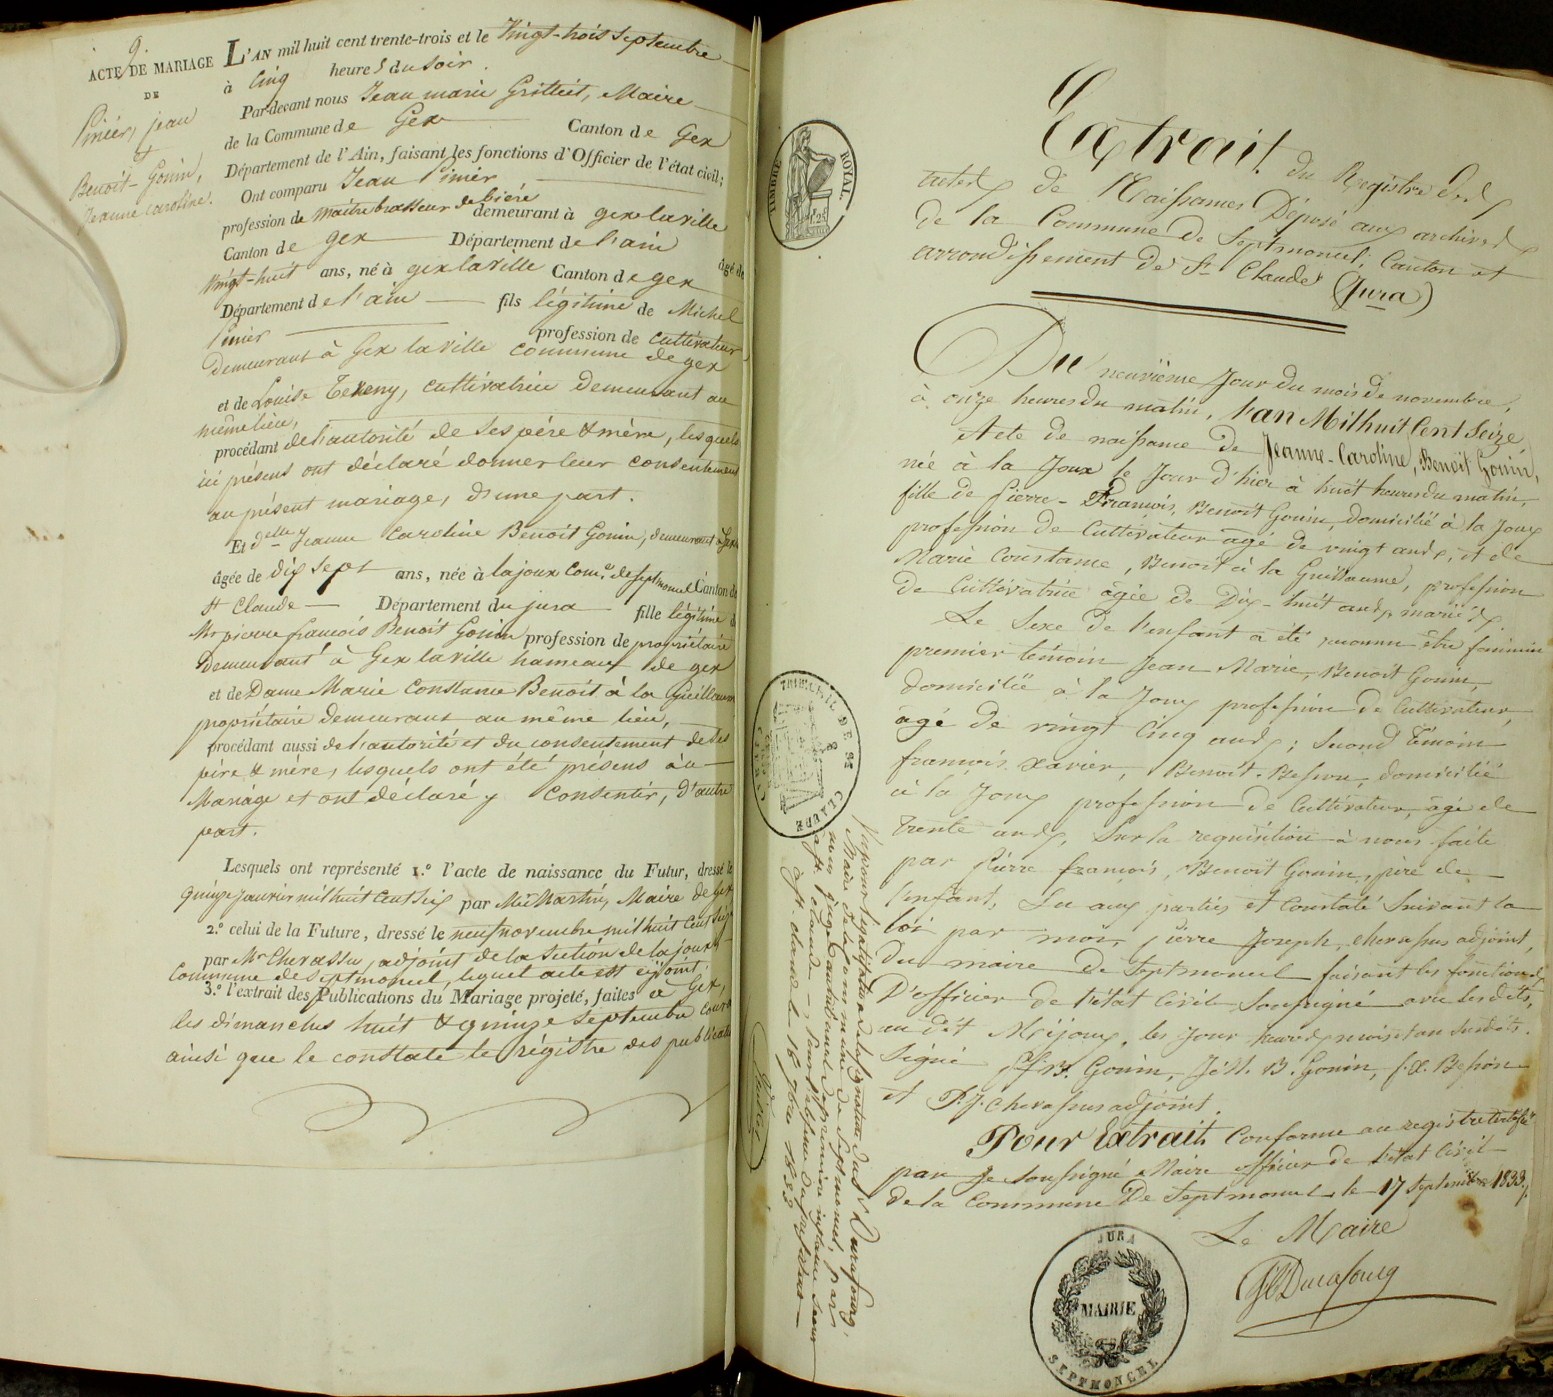 9.
ACTE DE MARIAGE
DE
Pinier, jean
&
Benoit-Gonin,
Jeanne caroline.
L'AN mil huit cent trente-trois et le Vingt-trois Septembre
à Cinq heures du soir.
Par-devant nous Jean marie Grottet, Maire
de la Commune de Gex Canton de Gex
Département de l'Ain, faisant les fonctions d'Officier de l'état civil;
Ont comparu Jean Pinier
profession de maitre brasseur de bière demeurant à gex la ville
Canton de gex Département de l'ain âgé de
Vingt-huit ans, né à gex la ville Canton de gex
Département de l'ain fils légitime de Michel
Pinier profession de cultivateur
Demeurant à Gex la ville commune de gex
et de Louise cultivatrice demeurant au
même lieu,
procédant de l'autorité de ses père & mère, lesquels
ici présens ont déclaré donner leur consentement
au présent mariage, d'une part.
Et delle Jeanne Caroline Benoit Gonin, demeurant à Gex
âgée de dix sept ans, née à lajoux Com.e de septmoncel Canton de
St Claude Département du jura fille légitime de
Mr pierre françois Benoit Gonin profession de propriétaire
Demeurant à Gex la ville hameau de gex
et de Dame Marie Constance Benoit à la Guillaume
propriétaire demeurant au même lieu,
procédant aussi de l'autorité et du consentement de ses
père & mère, lesquels ont été présens au
Mariage et ont déclaré y consentir, d'autre
part.
Lesquels ont représenté 1.° l'acte de naissance du Futur, dressé le
quinze janvier mil huit Cent six par Martin, Maire de Gex
2.° celui de la Future, dressé le neuf novembre mil huit Cent seize
par Mr Chevassu, adjoint de la section de lajoux
Commune de septmoncel, lequel acte est cijoint;
3.° l'extrait des Publications du Mariage projeté, faites à Gex,
les dimanches huit & quinze septembre courant
ainsi que le constate le régistre des publications
TIMBRE ROYAL
Extrait du Registre des
actes de Naissances Déposé aux archives
de la Commune de Septmoncel, Canton et
arrondissement de St Claude (Jura)
Du neuvième Jour du mois de novembre,
à onze heures du matin, l'an Mil huit Cent Seize
Acte de naissance de Jeanne-Caroline, Benoit Gonin,
née à la Joux le Jour d'hier à huit heures du matin,
fille de Pierre-François, Benoit Gonin, domicilié à la Joux
profession de Cultivateur agé de vingt ans, et de
Marie Constance, Benoit à la Guillaume, profession
de Cultivatrice agée de Dix-huit ans, mariés.
Le Sexe de l'enfant a été reconnu être féminin
premier témoin Jean Marie, Benoit Gonin,
domicilié à la Joux profession de Cultivateur,
âgé de vingt Cinq ans; Second témoin
françois xavier, Benoit-Besson, domicilié
à la Joux profession de Cultivateur, âgé de
trente ans, Sur la requisition à nous faite
par Pierre françois, Benoit Gonin, père de
l'enfant, Lu aux parties et Constaté Suivant la
loi par moi, pierre Joseph, chevassus adjoint,
du maire de Septmoncel faisant les fonctions
D'officier de l'état Civil Soussigné avec les dits,
au dit Mijoux, les Jour heure mois et an susdits.
Signé p. f. B. Gonin, J. M. B. Gonin, f. X. Besson
et P. J. chevassus adjoint.
Pour Extrait Conforme au registre
par Je soussigné Maire officier de l'état Civil
de la Commune De Septmoncel le 17 Septembre 1833.
Le Maire
JURA
MAIRIE
SEPTMONCEL
TRIBUNAL DE ST CLAUDE
Vu pour légalisation de la signature du Sr
Maire de la commune de Septmoncel, par
nous Juge au tribunal de première instance séant
à St. claude,
St. claude le